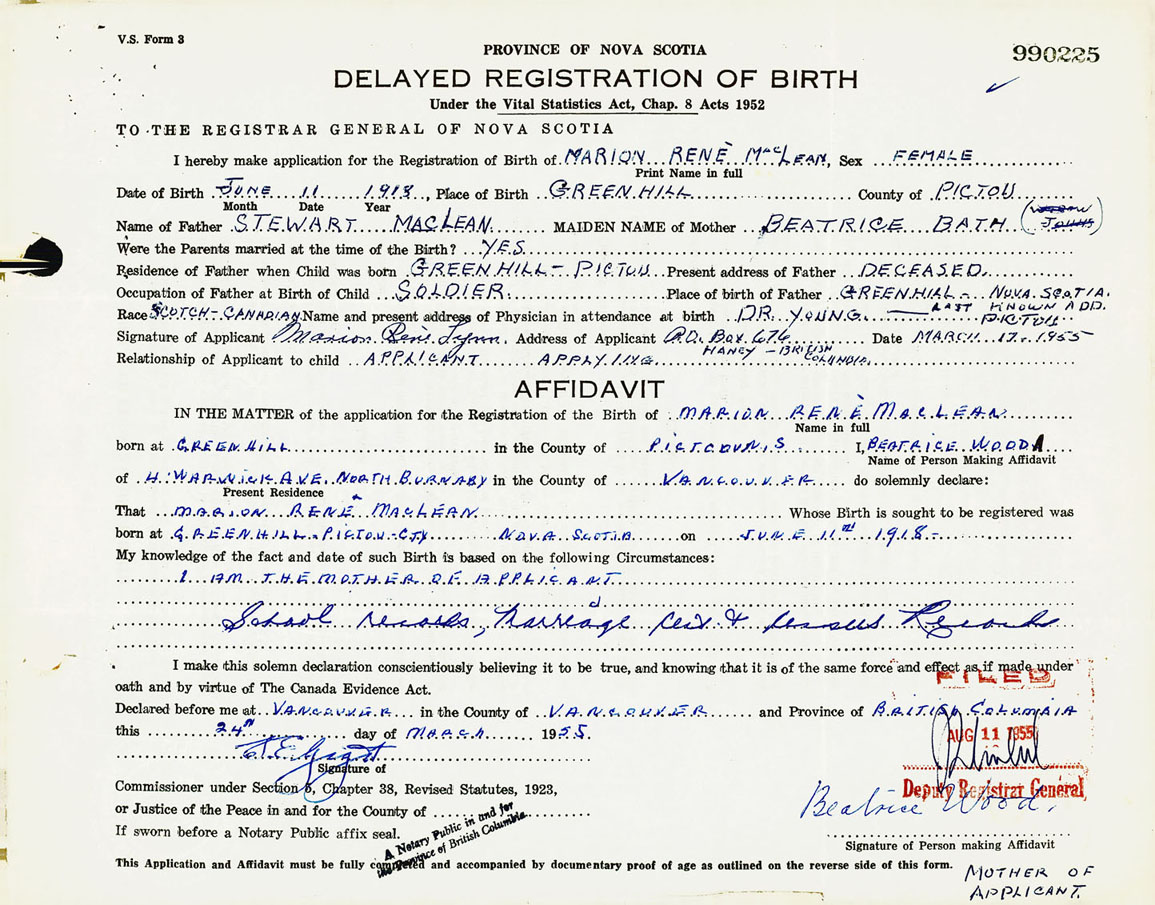 V.S. Form 3
PROVINCE OF NOVA SCOTIA
990225
DELAYED REGISTRATION OF BIRTH
Under the Vital Statistics Act, Chap. 8 Acts 1952
TO THE REGISTRAR GENERAL OF NOVA SCOTIA
I hereby make application for the Registration of Birth of MARION RENÈ MacLEAN, Sex FEMALE
Print Name in full
Date of Birth JUNE 11 1918, Place of Birth GREEN HILL County of PICTOU
Month Date Year
Name of Father STEWART MACLEAN MAIDEN NAME of Mother BEATRICE BATH
Were the Parents married at the time of the Birth? YES
Residence of Father when Child was born GREEN HILL - PICTOU Present address of Father DECEASED
Occupation of Father at Birth of Child SOLDIER Place of birth of Father GREEN HILL - NOVA SCOTIA.
Race SCOTCH - CANADIAN Name and present address of Physician in attendance at birth DR. YOUNG. — LAST KNOWN ADD. PICTOU
Signature of Applicant Marion Renè Lynn. Address of Applicant P.O. Box 676 Date MARCH 17. 1955
HANEY - BRITISH COLUMBIA.
Relationship of Applicant to child APPLICANT APPLYING
AFFIDAVIT
IN THE MATTER of the application for the Registration of the Birth of MARION RENÈ MACLEAN
Name in full
born at GREEN HILL in the County of I, BEATRICE WOOD
Name of Person Making Affidavit
of WARWICK AVE. NORTH BURNABY in the County of VANCOUVER do solemnly declare:
Present Residence
That MARION RENÈ MACLEAN Whose Birth is sought to be registered was
born at GREEN HILL - PICTOU - CTY NOVA SCOTIA on JUNE 11TH 1918 -
My knowledge of the fact and date of such Birth is based on the following Circumstances:
I AM THE MOTHER OF APPLICANT
School records, Marriage Cert & Census Records
I make this solemn declaration conscientiously believing it to be true, and knowing that it is of the same force and effect as if made under
oath and by virtue of The Canada Evidence Act.
FILED
Declared before me at VANCOUVER in the County of VANCOUVER and Province of BRITISH COLUMBIA
this 24TH day of MARCH 1955.
AUG 11 1955
Signature of
Deputy Registrar General
Commissioner under Section 5, Chapter 38, Revised Statutes, 1923,
Beatrice Wood.
or Justice of the Peace in and for the County of
If sworn before a Notary Public affix seal.
A Notary Public in and for
the Province of British Columbia.
Signature of Person making Affidavit
This Application and Affidavit must be fully completed and accompanied by documentary proof of age as outlined on the reverse side of this form.
MOTHER OF
APPLICANT.